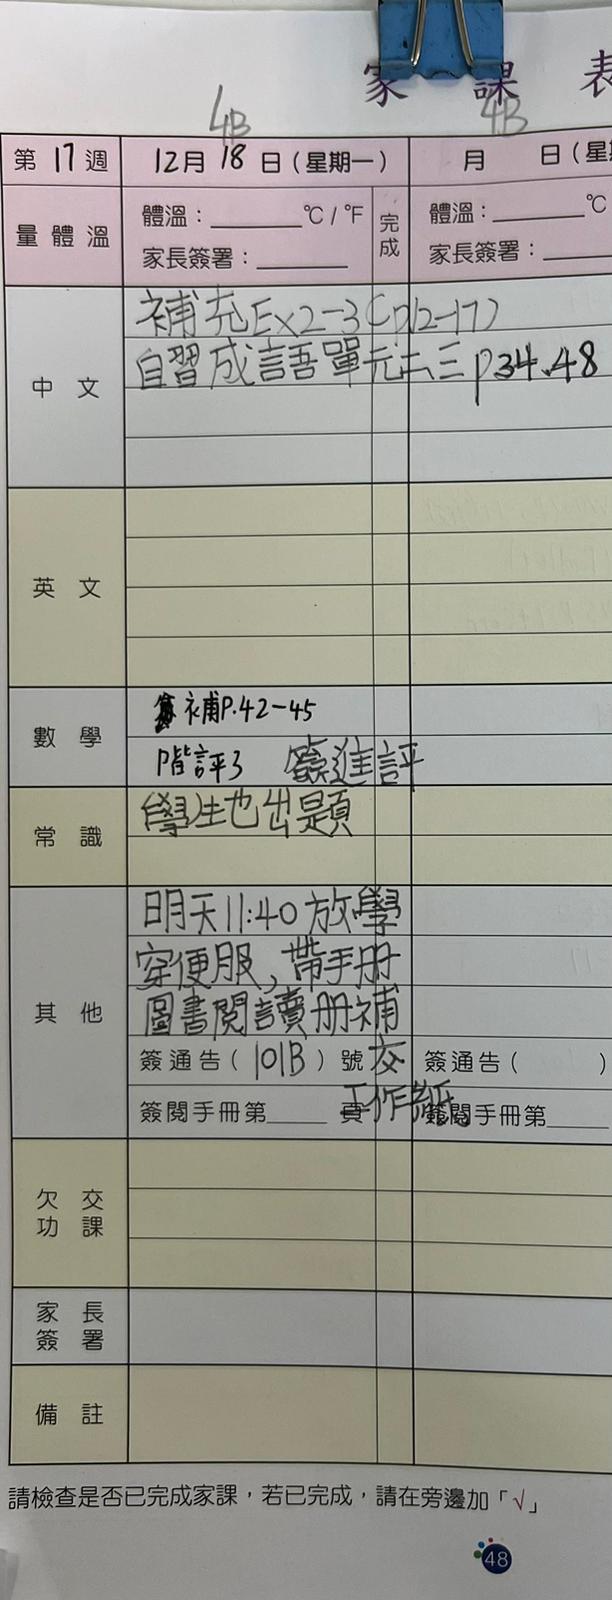 家課表
4B
4B
第17週
12月18日(星期一)
月 日(星
量體溫
體溫:______℃/℉
家長簽署:______
完成
體溫:______℃
家長簽署:____
中文
補充Ex2-3(p12-17)
自習成語單元二、三p34、48
英文
數學
補P.42-45
P階評3 簽進評
常識
學生也出題
其他
明天11:40放學
穿便服,帶手册
圖書閱讀册補
簽通告(101B)號交
簽通告( )
簽閱手冊第____頁工作紙。
簽閱手冊第____
欠交功課
家長簽署
備註
請檢查是否已完成家課,若已完成,請在旁邊加「√」
48